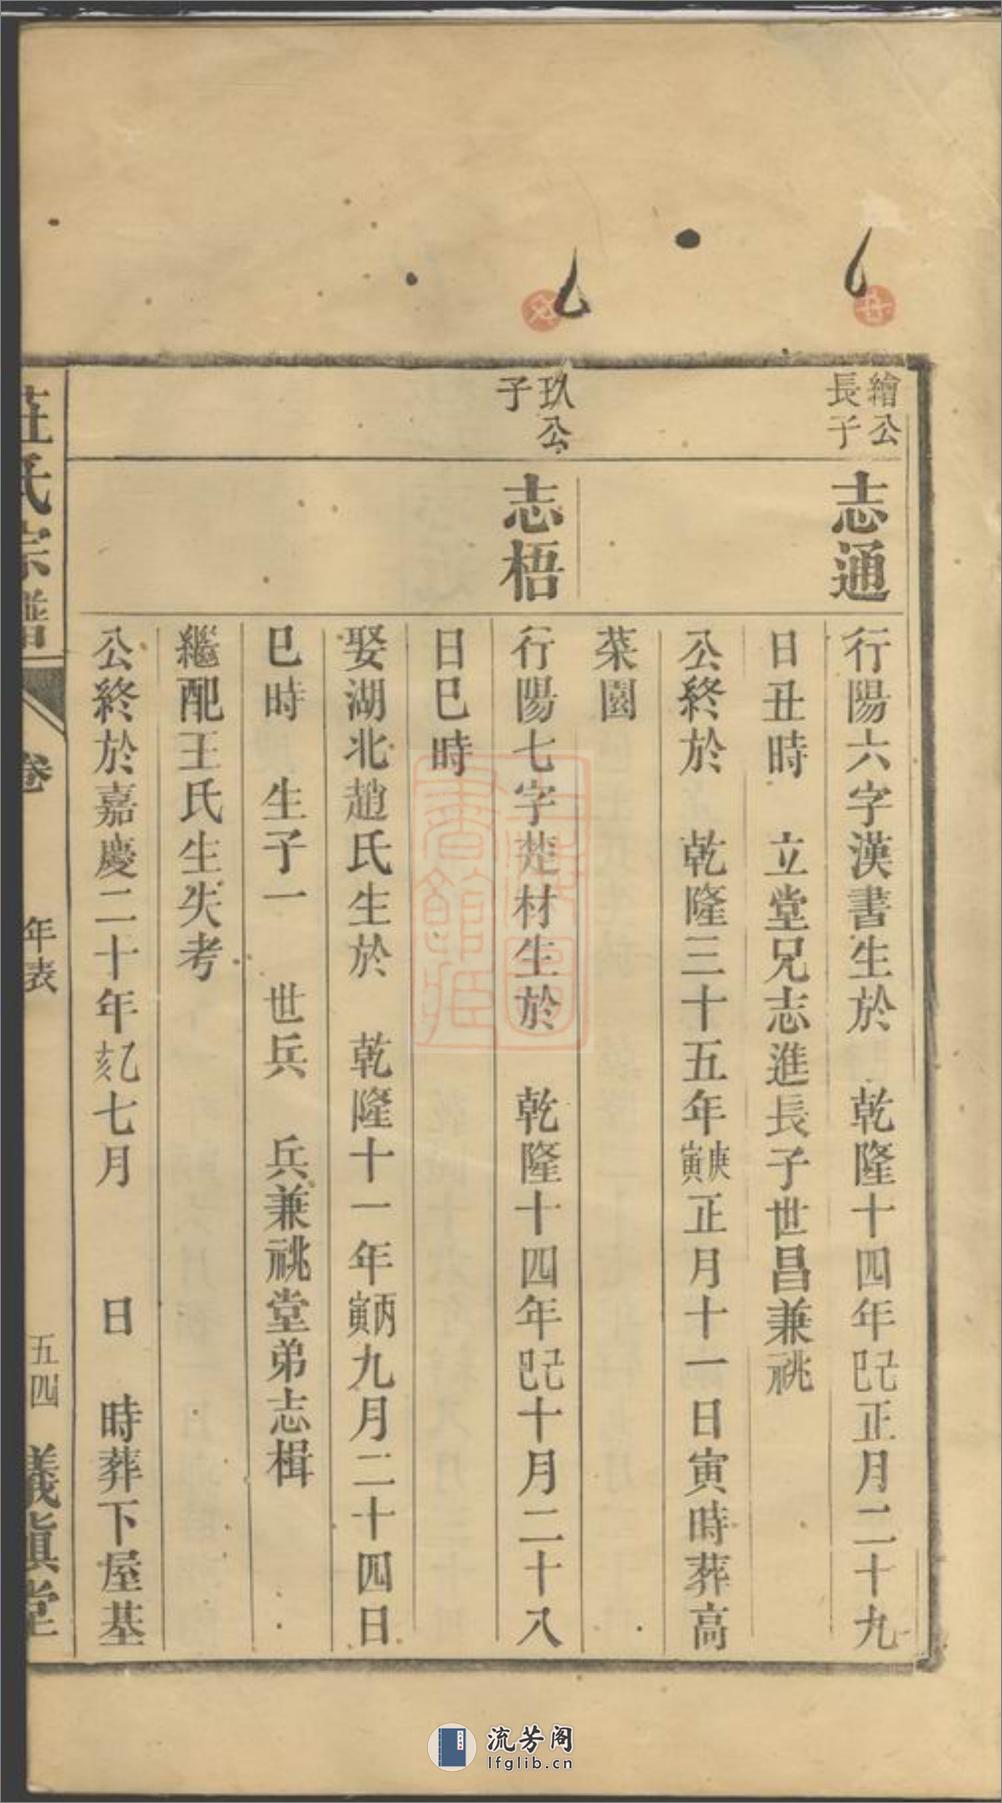 繪公
長子
志通
行陽六字漢書生於　乾隆十四年己巳正月二十九
日丑時　立堂兄志進長子世昌兼祧
公終於　乾隆三十五年庚寅正月十一日寅時葬高
菜園
玖公
子
志梧
行陽七字楚材生於　乾隆十四年己巳十月二十八
日巳時
娶湖北趙氏生於　乾隆十一年丙寅九月二十四日
巳時　生子一　世兵　兵兼祧堂弟志楫
繼配王氏生失考
公終於嘉慶二十年乙亥七月　　日　時葬下屋基
莊氏宗譜
卷
年表
五四
儀真堂
流芳阁
lfglib.cn